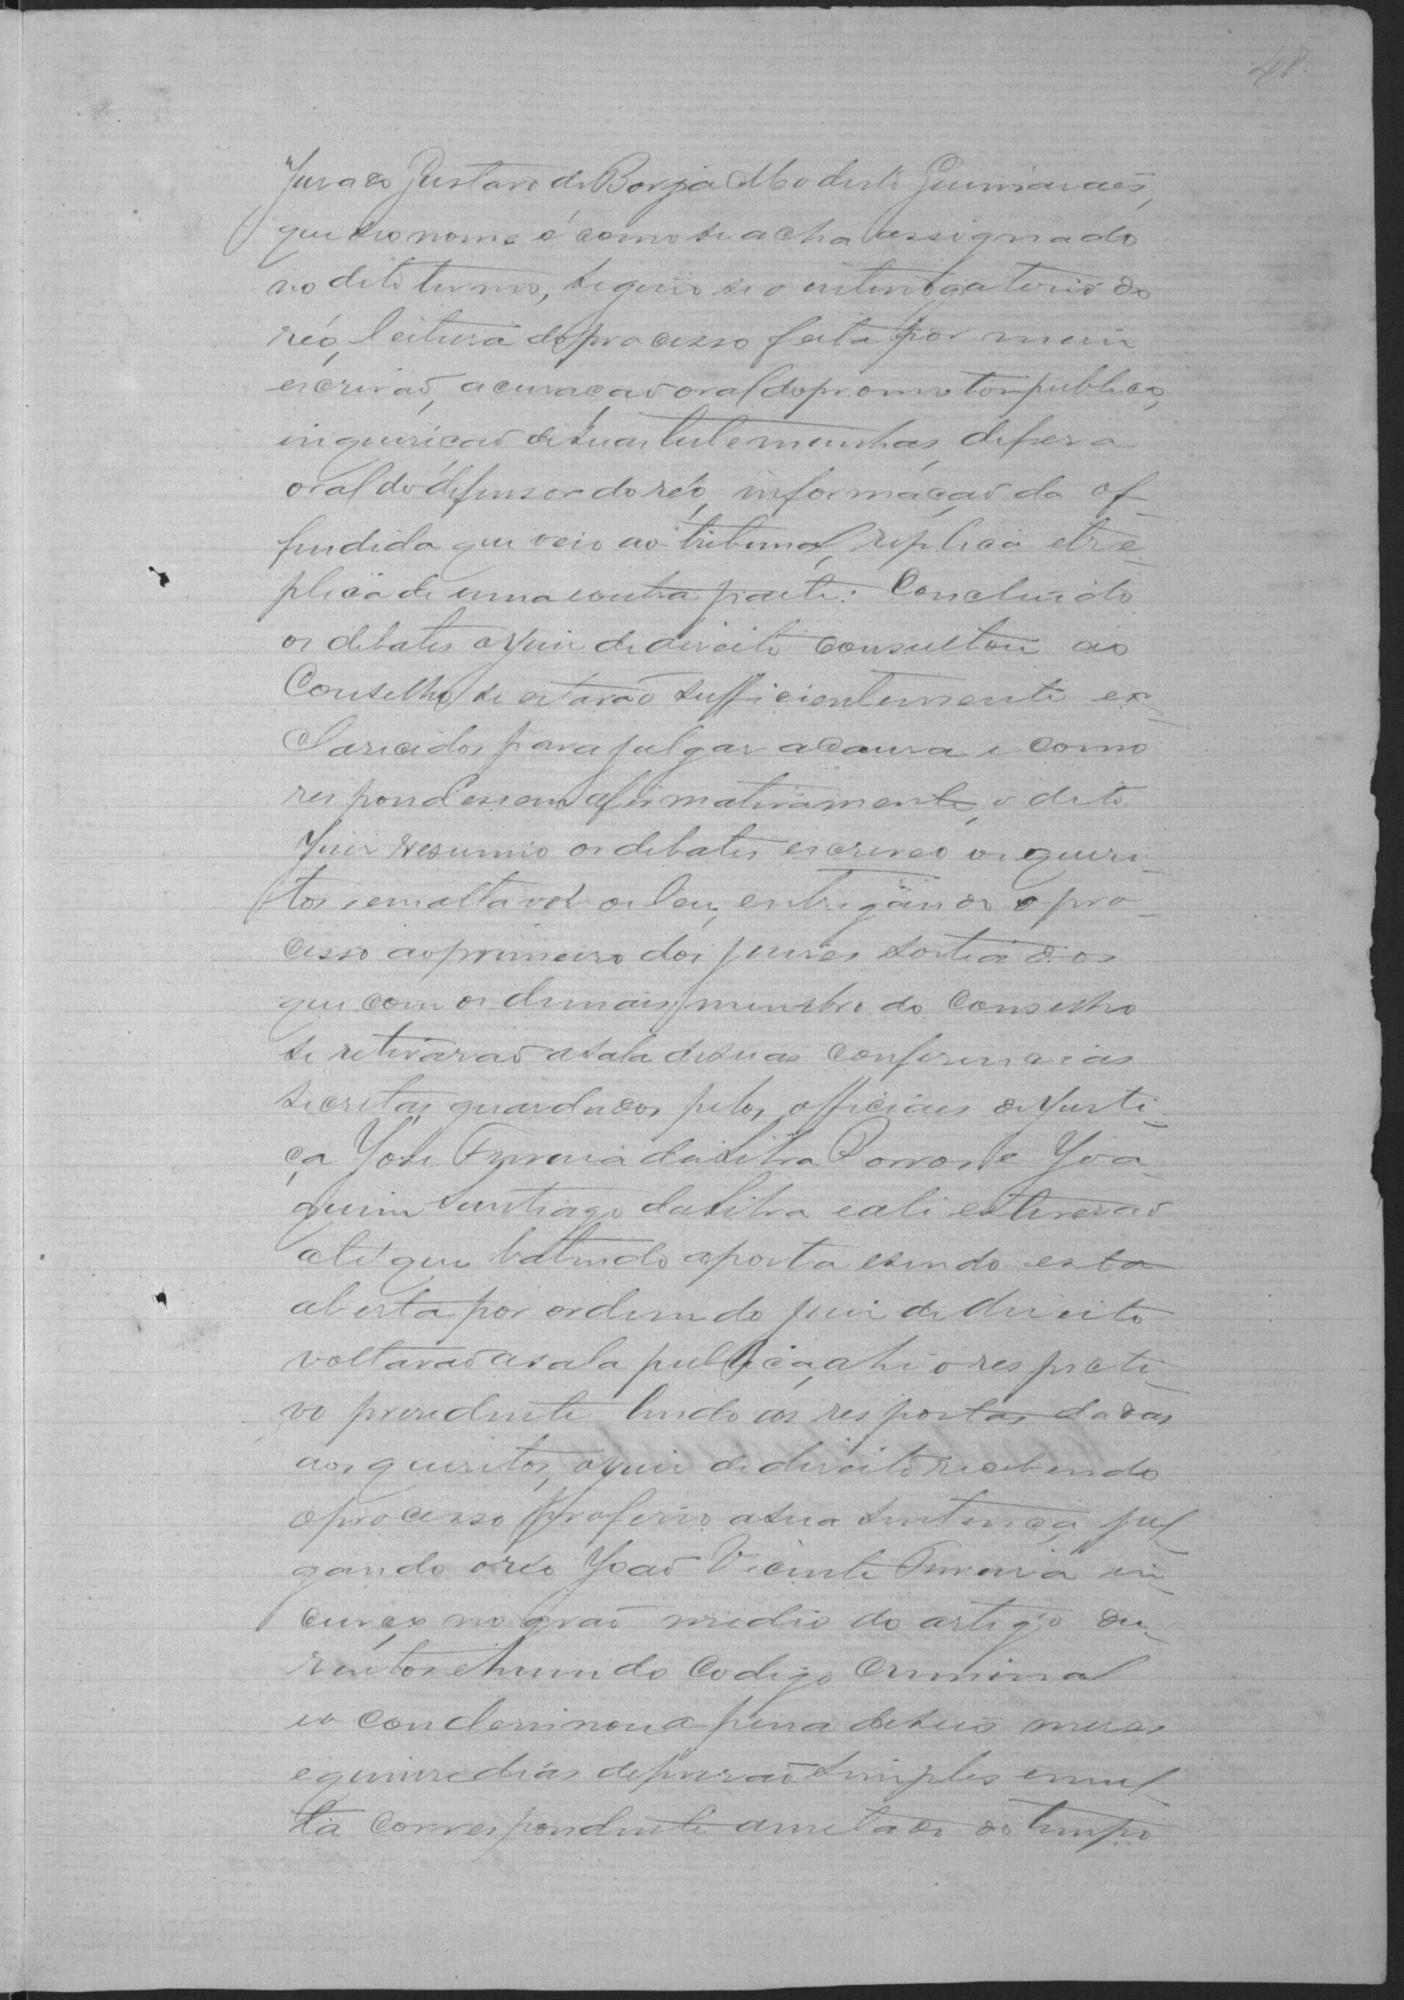 48
Jurado Gustavo de Borja Modesto Guimaraẽs,
que seo nome é como se acha assignado
no dito termo, seguio se o enterrogatorio do
réo, leitura do processo feita por mim
escrivaõ, acusaçaõ oral do promotor publico,
inquiriçaõ de suas testemunhas, defeza
oral do defensor do réo, informaçaõ da of-
fendida que veio ao tribunal, replica e tre-
plica de uma contra parte. Concluido
os debates o juiz de direito consultou ao
Conselho se estavaõ sufficientemente es-
clarecidos para julgar a causa e como
respondessem afirmativamente, o dito
Juiz resumio os debates escreveo os quesi-
tos e em alta voz os leu, entregando o pro-
cesso ao primeiro dos juizes sorteados
que com os demais membro do Conselho
se retiraraõ a sala de suas conferencias
secretas guardados pelos officiaes de justi-
ça José Ferreira da Silva Porros e Joa-
quim Santiago da Silva e ali estiveraõ
até que batendo a porta e sendo esta
aberta por ordem do juiz de direito
voltaraõ a sala publica, ahi o respecti-
vo presidente lendo as respostas dadas
aos quesitos, o juiz de direito recebendo
o processo proferio a sua sentença, jul-
gando o réo Joaõ Vicente Ferreira in-
curço no graõ medio do artigo du-
zentos e hum do Codigo Criminal
e o condemnou a pena de seis mezes
e quinze dias de prisaõ simples e mul-
ta correspondente a metade do tempo